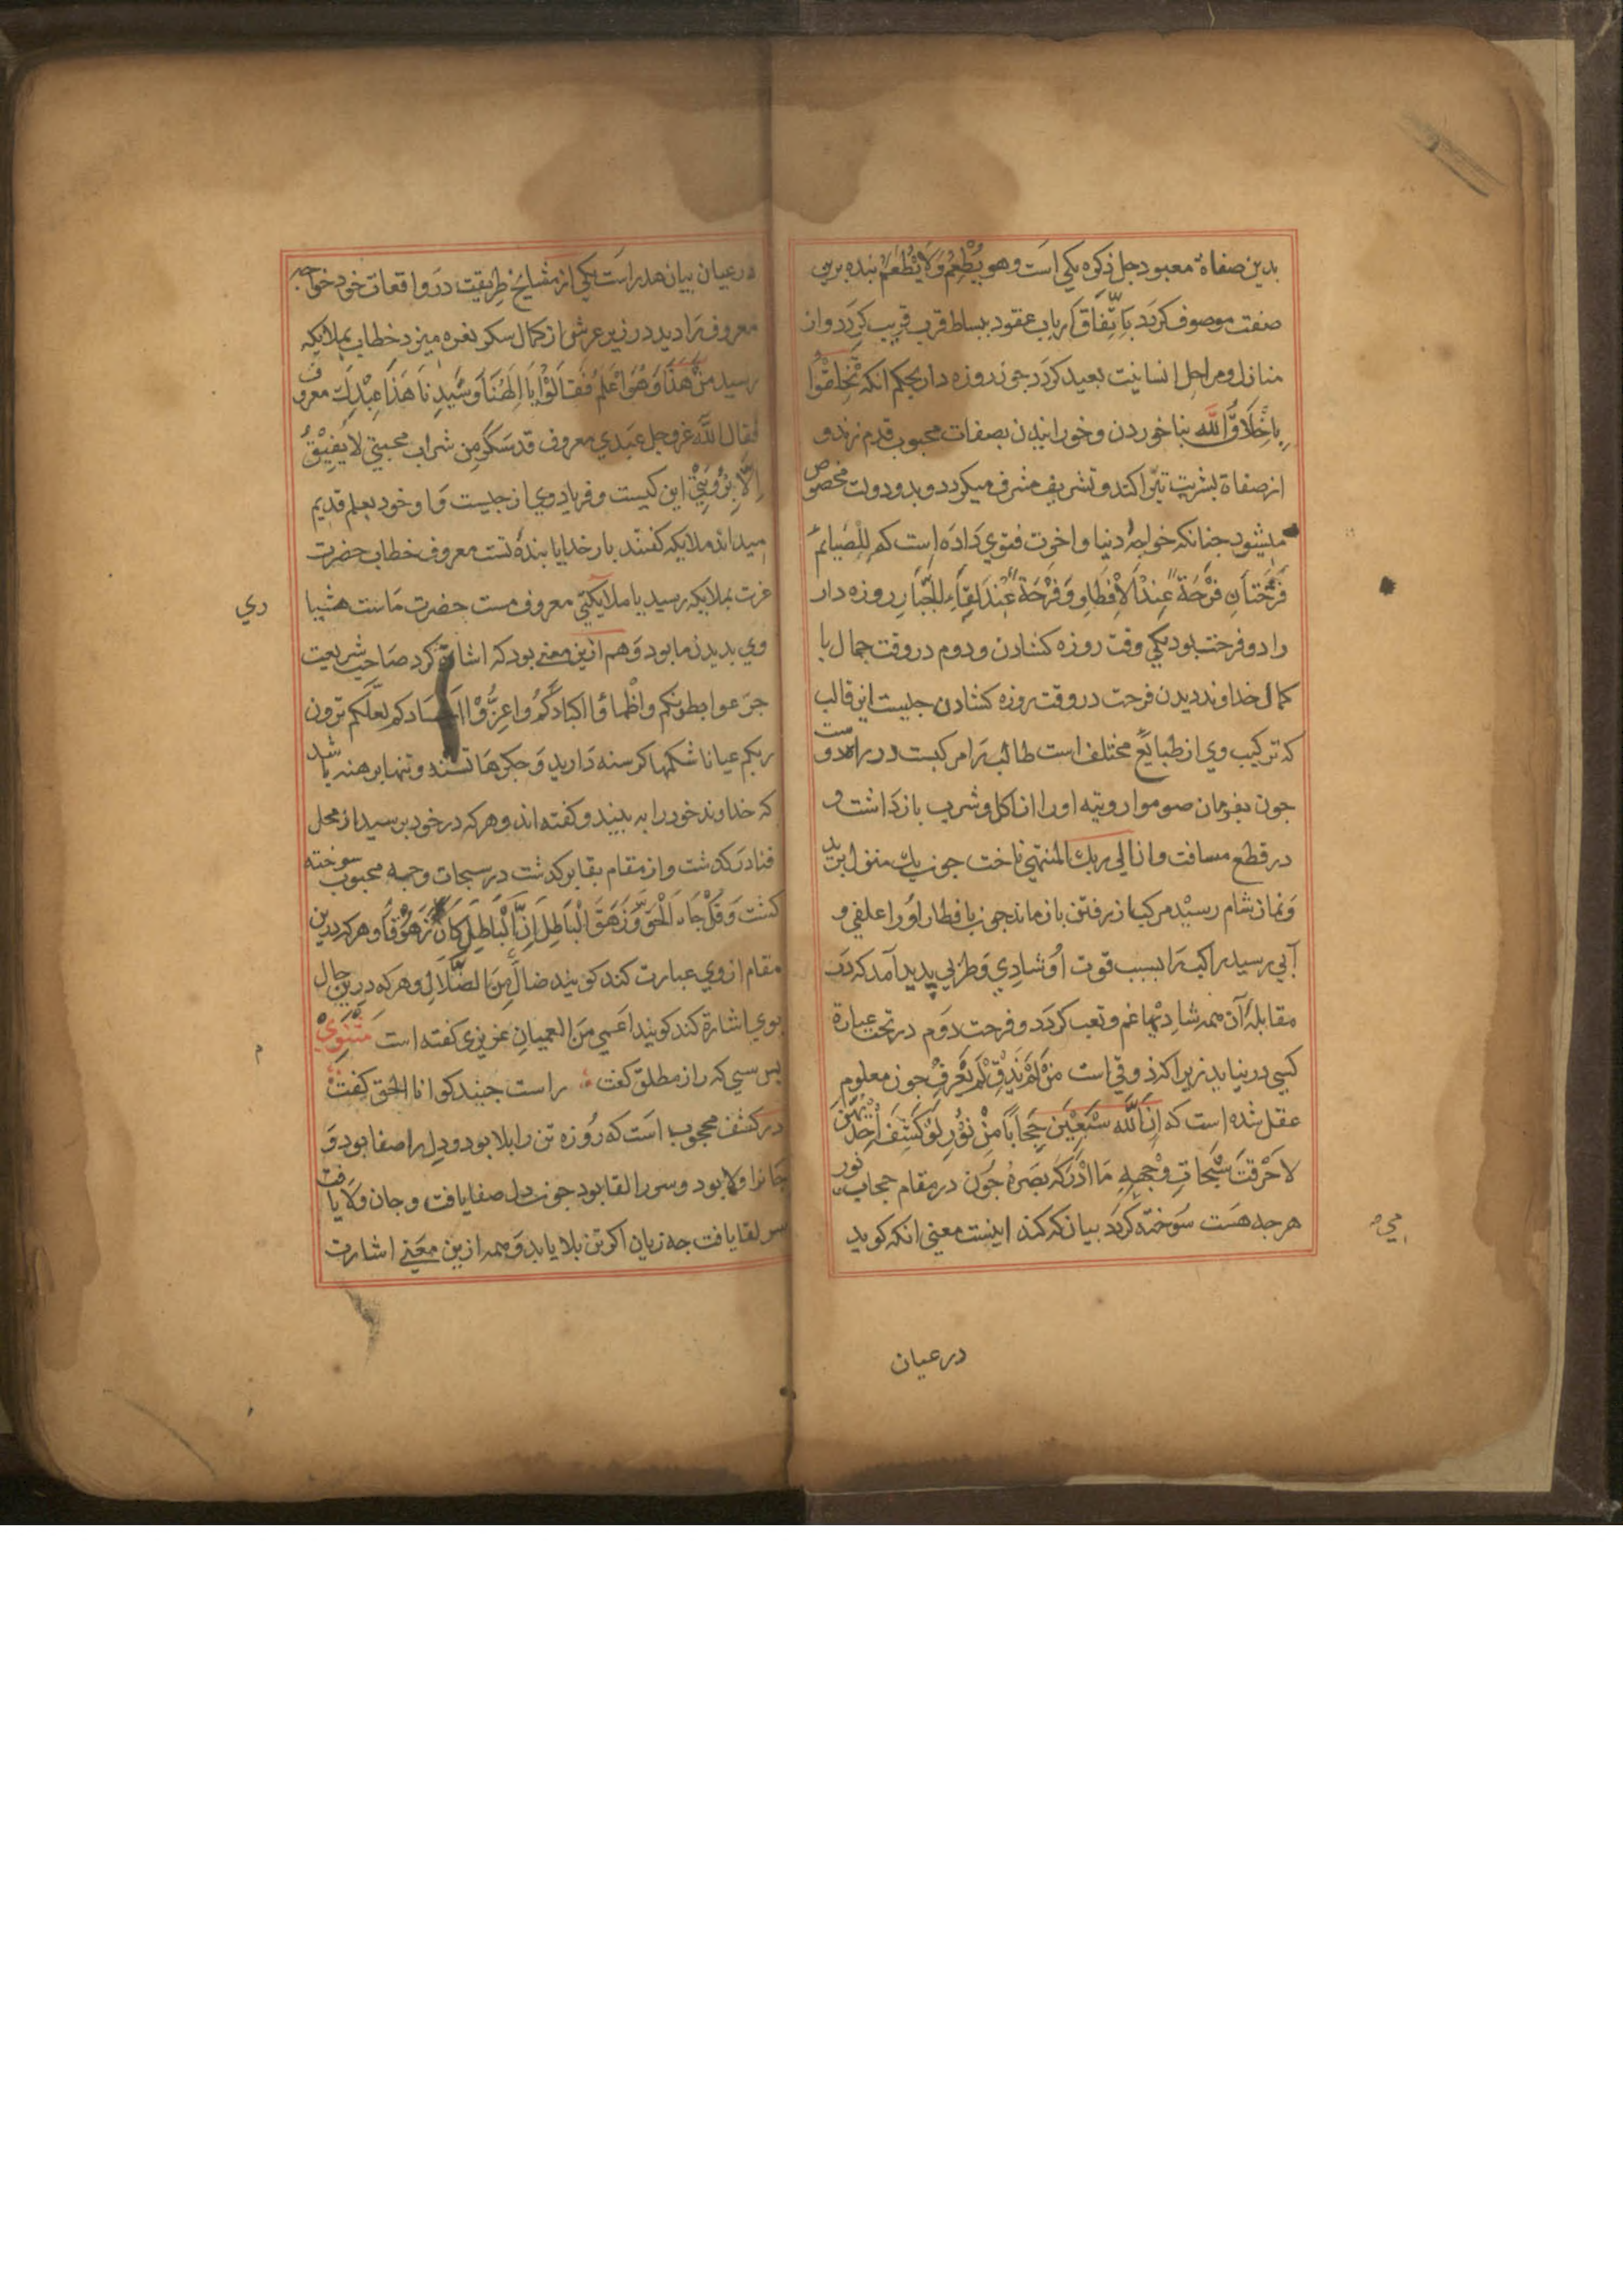 بدین صفاة معبود جل ذکره یکی است وهو یُطْعِمُ وَلَا یُطْعَمُ بنده برین
صفت موصوف کردد بَاتِّفَاقْ اَرباب عقود ببساط قرب قریب کردد واز
منازل ومراحل انسانیت بعید کردد جون روزه دار بحکم انکه تَخَلَّقُوْا
بِاَخْلَاقِ اللّٰه بناخوردن وخورانیدن بصفات محبوب قدم زند و
از صفاة بشریت تبرّا کند وتشریف مشرف میکردد وبدو دولت مخصوص
میشود جنانکه خواجهٔ دنیا واخرت فتوی دَادَه است که لِلصَّایِمِ
فَرْحَتَانِ فَرْحَةٌ عِنْدَ الْاِفْطَارِ وَفَرْحَةٌ عِنْدَ لِقَاءِ الْجَبَّارِ روزه دار
را دو فرحت بود یکی وقت روزه کشادن ودوم در وقت جمال با
کمال خداوند دیدن فرحت در وقت روزه کشادن جیست این قالب
که ترکیب وی از طبایع مختلف است طالب را مرکبست در راه دوست
جون بفرمان صوموا لرویته او را از اکل وشرب بازداشت و
در قطع مسافت وان الی ربك المنتهی تاخت جون یك منزل برید
وَنماز شام رسید مرکب از رفتن باز ماند جون بافطار اورا علفی و
آبی رسید راکب را بسبب قوت او شادی وَطربی پدید آمد که در
مقابلهٔ آن همه شادیها غم وتعب کردد وفرحت دوم در تحت عبارة
کسی در نیاید زیرا که ذوقی است مَنْ لَمْ یَذُقْ لَمْ یَعْرِفْ جون معلوم
عقل شده است که اِنَّ لِلّٰهِ سَبْعِیْنَ حِجَاباً مِنْ نُوْرٍ لَوْ کَشَفَ اَحَدُیْهِنَّ
لَاحْرَقَتْ سُبُحَاتُ وَجْهِهِ مَا اَدْرَكَهُ بَصَرُهُ جون در مقام حجاب نور
هرجه هست سوخته کردد بیان که کند اینست معنی انکه کوید
در عیان
در عیان بیان هدر است یکی از مشایخ طریقت در واقعات خود خواجه
معروف را دید در زیر عرش از کمال سکر نعره میزد خطاب بملایکه
رسید مَنْ هَذَا وَهُوَ اَعْلَمُ فَقَالَوُا یَا اِلَهَنَا وَسَیِّدِنَا هَذَا عَبْدِكَ معروف
فقال اللّٰه عزوجل عبدی معروف قد سکر من شراب محبتی لَا یُفِیْقُ
اِلَّا بِرُؤْیَتِیْ این کیست وفریاد وی از جیست وَاو خود بعلم قدیم
میداند ملایکه کفتند بار خدایا بندهٔ تست معروف خطاب حضرت
عزت بملایکه رسید یا ملایکتی معروف مست حضرت ماست هشیا
ری
وی بدیدن ما بود وَهم ازین معنے بود که اشارة کرد صاحب شریعت
جَوّعوا بطونکم واَظْمَاؤا اکبادَکُم واعزُّوْا اَجسادکم لعلّکم ترون
ربکم عیانا شکمها کرسنه دَارید وَجکرها تشنه وتنها برهنه باشد
که خداوند خود را به بینید وکفته اند وهرکه در خود برسید از محل
فنا در کذشت واز مقام بقا بر کذشت در سبحات وجه محبوب سوخته
کشت وَقُلْ جَاءَ الْحَقُّ وَزَهَقَ الْبَاطِلُ اِنَّ الْبَاطِلَ کَانَ زَهُوْقاً وهرکه درین
مقام از وی عبارت کند کویند ضالٌّ مِنَ الضَّلَالِ وهرکه درین حال
بوی اشارة کند کویند اَعمی مِنَ العمیان عزیزی کفته است مثنوی
پس سی که راز مطلق کفت راست جنید کو انا الحق کفت
در کشف محجوب است که روزه تن را بلا بود ودل را صفا بود وَ
جَانرا ولا بود وسر را لقا بود جون دل صفا یافت وجان وَلا یافت
سر لقا یافت جه زیان اکر تن بلا یابد وَهمه ازین معنے اشارت